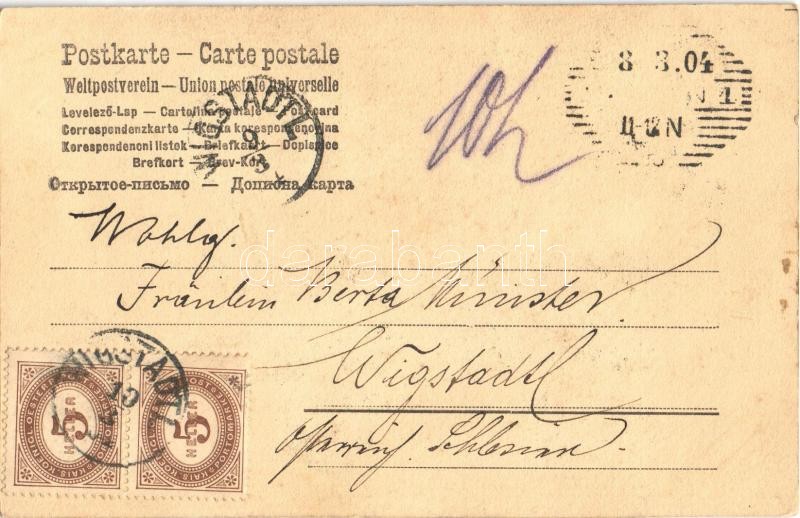 Postkarte — Carte postale
Weltpostverein — Union postale universelle
Levelező-Lap — Cartolina postale — Postcard
Correspondenzkarte — Karta korespondencyjna
Korespondenční listek — Briefkaart — Dopisnice
Brefkort — Brev-Kort
Открытое-письмо — Дописна карта
WIGSTADTL
9/3
10h
8 3.04
1
11-12N
Wohlg.
Fräulein Berta Münster
Wigstadtl
Österreich. Schlesien
darabanth
WIGSTADTL
10
5 HELLER
5 HELLER